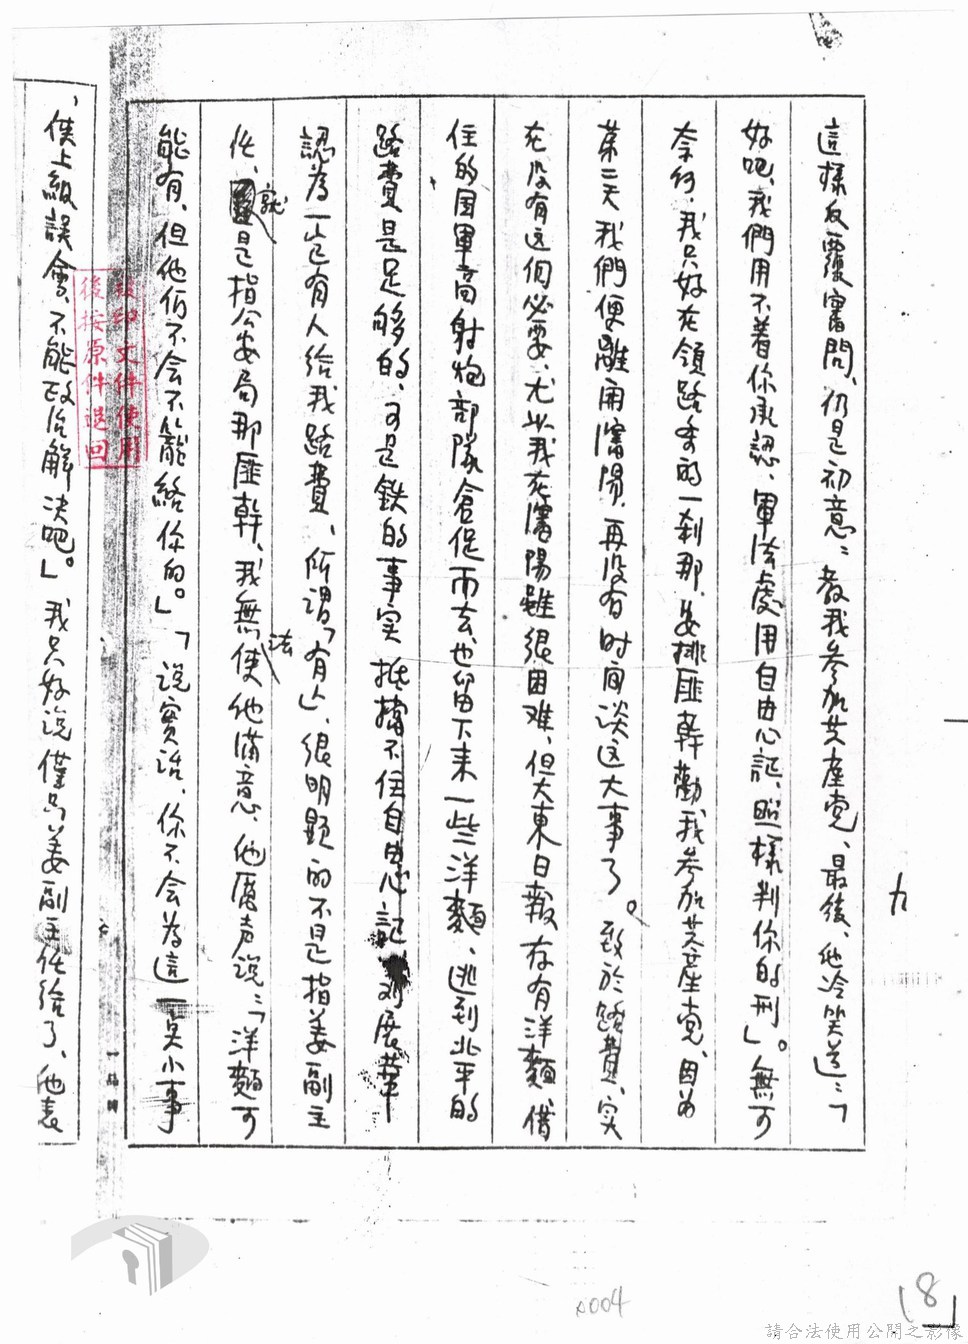 這樣反覆審問、仍是初意：教我參加共產党、最後、他冷笑道：「
好吧、我們用不着你承認、軍法處用自由心証、照樣判你的刑」。無可
奈何、我只好在領路季的一剎那、安排匪幹勸我參加共產党、因为
苐二天我們便離開瀋陽、再没有时间谈这大事了。致於路費、实
在没有这個必要、尤此我在瀋陽雖很困难、但大東日報存有洋麵、借
住的国軍高射炮部隊倉促而去、也留下来一些洋麵、逃到北平的
路費是足够的、可是鉄的事实 抵擋不住自由心証 刘展華
認为一定有人给我路費、所谓「有人」、很明顕的不是指姜副主
任、就是指公安局那匪幹、我無法使他滿意、他厲声说：「洋麵可
能有、但他们不会不籠絡你的。」「说實话、你不会為這一点小事
、使上級誤會、不能政治解決吧。」我只好说僅只姜副主任给了、他表
九
後按原件退回
文件使用
一品牌
0004
8
請合法使用公開之影像